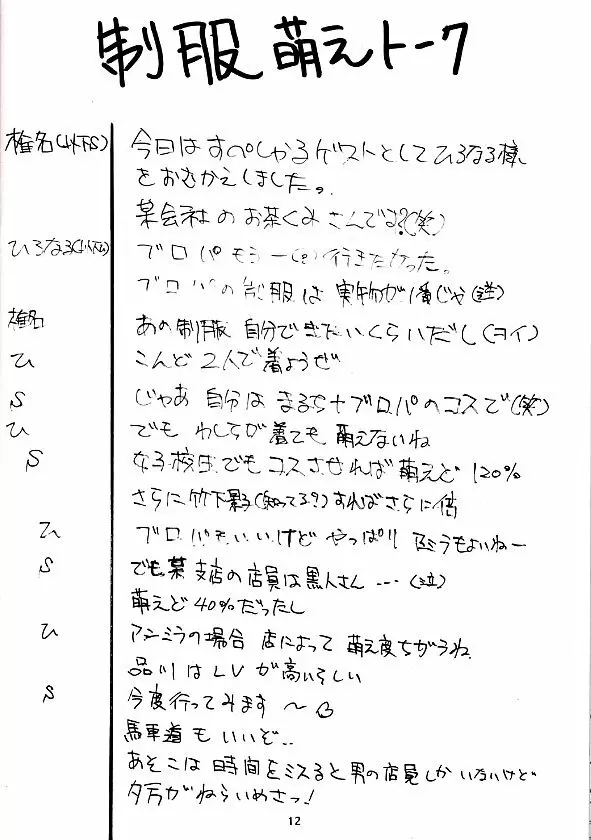 制服萌えトーク
椎名(以下S) 今日はすぺしゃるゲストとしてひろなる様
をおむかえしました。
某会社のお茶くみさんです?(笑)
ひろなる(以下ひ) ブロパもう一(?)行きたかった。
ブロパの制服は実物が1番じゃ(泣)
椎名 あの制服 自分できたいくらいだし(ヨイ)
ひ こんど2人で着ようぜ
S じゃあ自分はまるち+ブロパのコスで(笑)
ひ でも わしらが着ても萌えないね
S 女子校生でもコスさせれば萌えど120%
さらに竹下夥(知ってる?)すればさらに倍
ひ ブロパもいいけど やっぱり ミラもよいねー
S でも某支店の店員は黒人さん…(泣)
萌えど40%だったし
ひ アンミラの場合 店によって 萌え度ちがうね
品川はLVが高いらしい
S 今度行ってみます〜
馬車道もいいぞ..
あそこは時間をミスると男の店員しかいないけど
夕方がねらいめさっ!
12